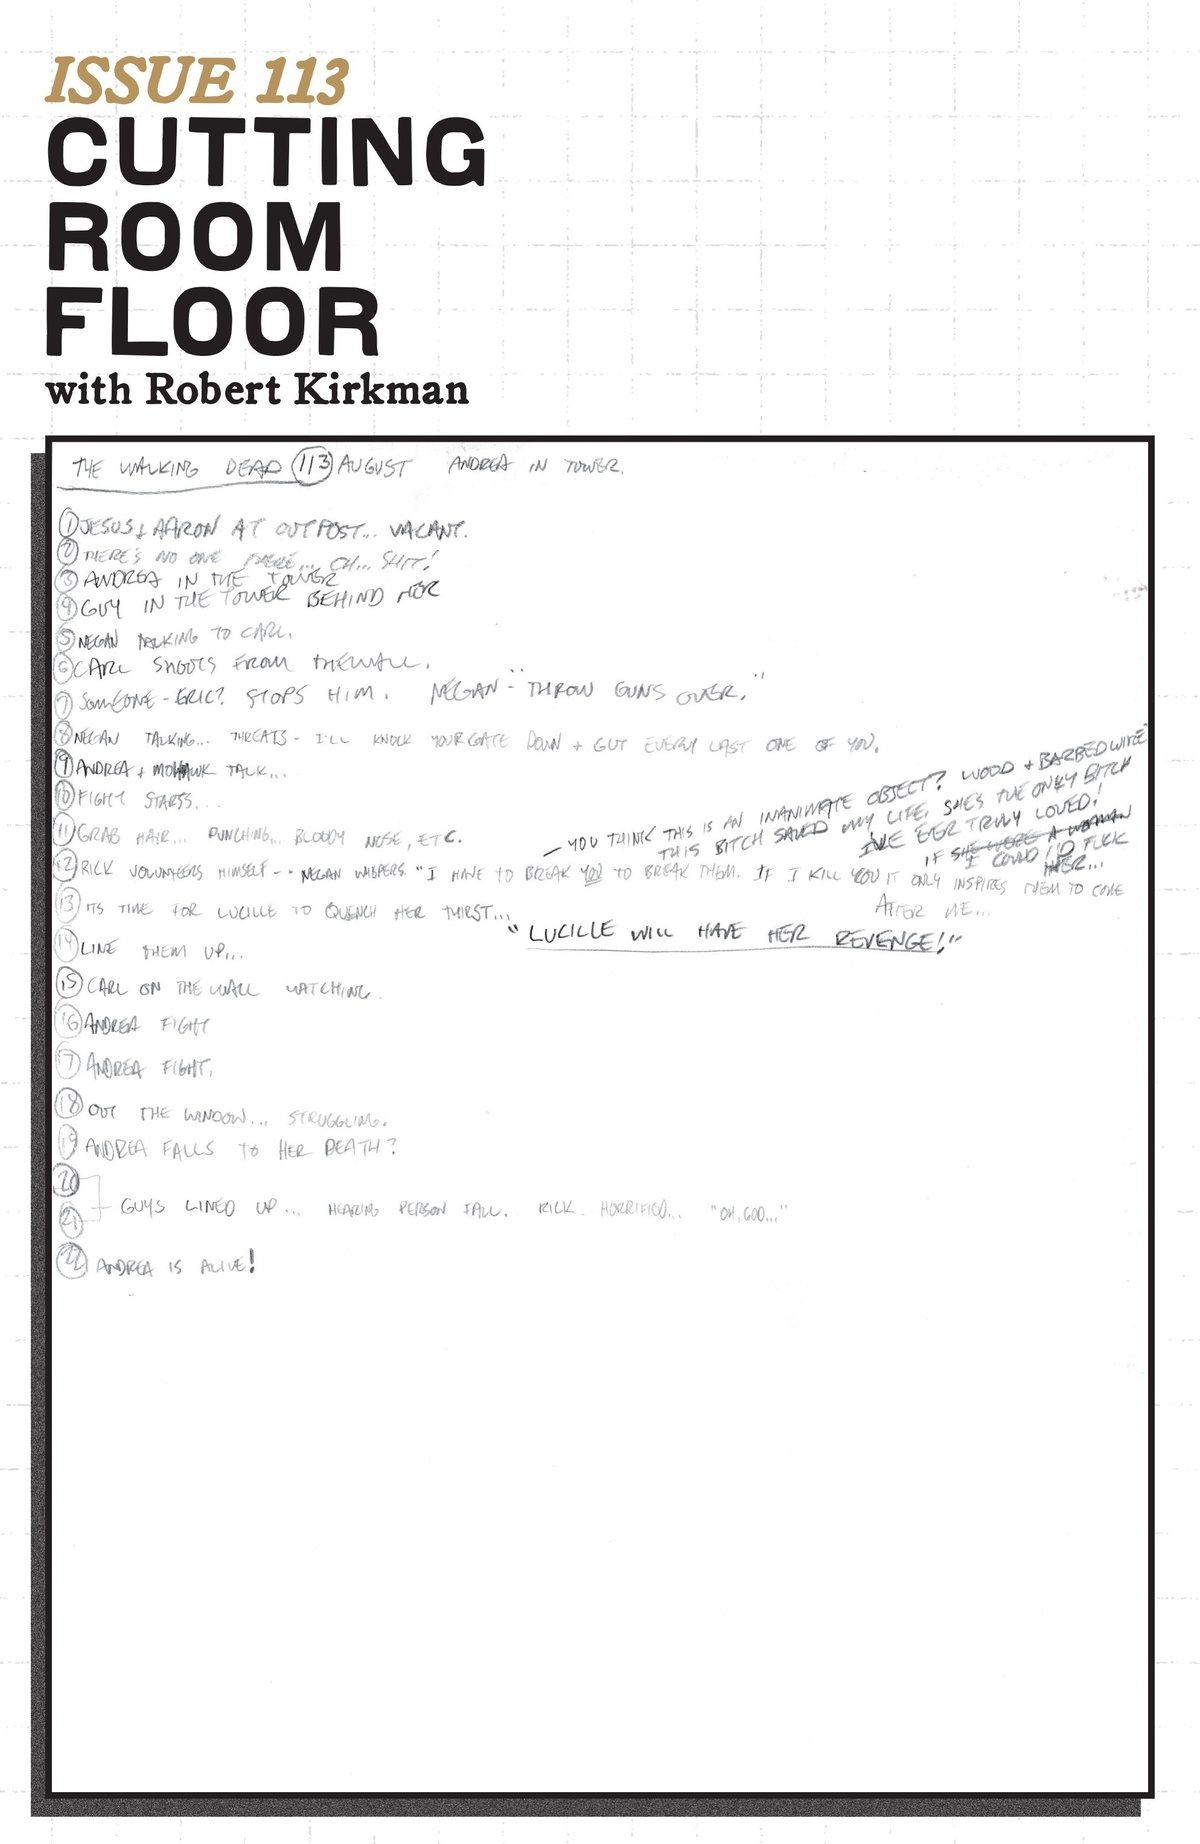 ISSUE 113
CUTTING
ROOM
FLOOR
with Robert Kirkman
THE WALKING DEAD 113 AUGUST ANDREA IN TOWER.
1 JESUS & AARON AT OUTPOST... VACANT.
2 THERE'S NO ONE THERE... OH... SHIT!
3 ANDREA IN THE TOWER
4 GUY IN THE TOWER BEHIND HER
5 NEGAN TALKING TO CARL.
6 CARL SHOOTS FROM THE WALL.
7 SOMEONE - ERIC? STOPS HIM. NEGAN - "THROW GUNS OVER."
8 NEGAN TALKING... THREATS - I'LL KNOCK YOUR GATE DOWN + GUT EVERY LAST ONE OF YOU.
9 ANDREA & MOHAWK TALK...
10 FIGHT STARTS...
11 GRAB HAIR... PUNCHING... BLOODY NOSE, ETC.
- YOU THINK THIS IS AN INANIMATE OBJECT? WOOD + BARBED WIRE?
THIS BITCH SAVED MY LIFE, SHE'S THE ONLY BITCH
I'VE EVER TRULY LOVED!
IF SHE WERE A WOMAN
I COULD I'D FUCK
HER...
12 RICK VOLUNTEERS HIMSELF -- NEGAN WHISPERS "I HAVE TO BREAK YOU TO BREAK THEM. IF I KILL YOU IT ONLY INSPIRES THEM TO COME
AFTER ME...
13 ITS TIME FOR LUCILLE TO QUENCH HER THIRST...
"LUCILLE WILL HAVE HER REVENGE!"
14 LINE THEM UP...
15 CARL ON THE WALL WATCHING.
16 ANDREA FIGHT
17 ANDREA FIGHT.
18 OUT THE WINDOW... STRUGGLING.
19 ANDREA FALLS TO HER DEATH?
20
21 GUYS LINED UP... HEARING PERSON FALL. RICK HORRIFIED... "OH, GOD..."
22 ANDREA IS ALIVE!